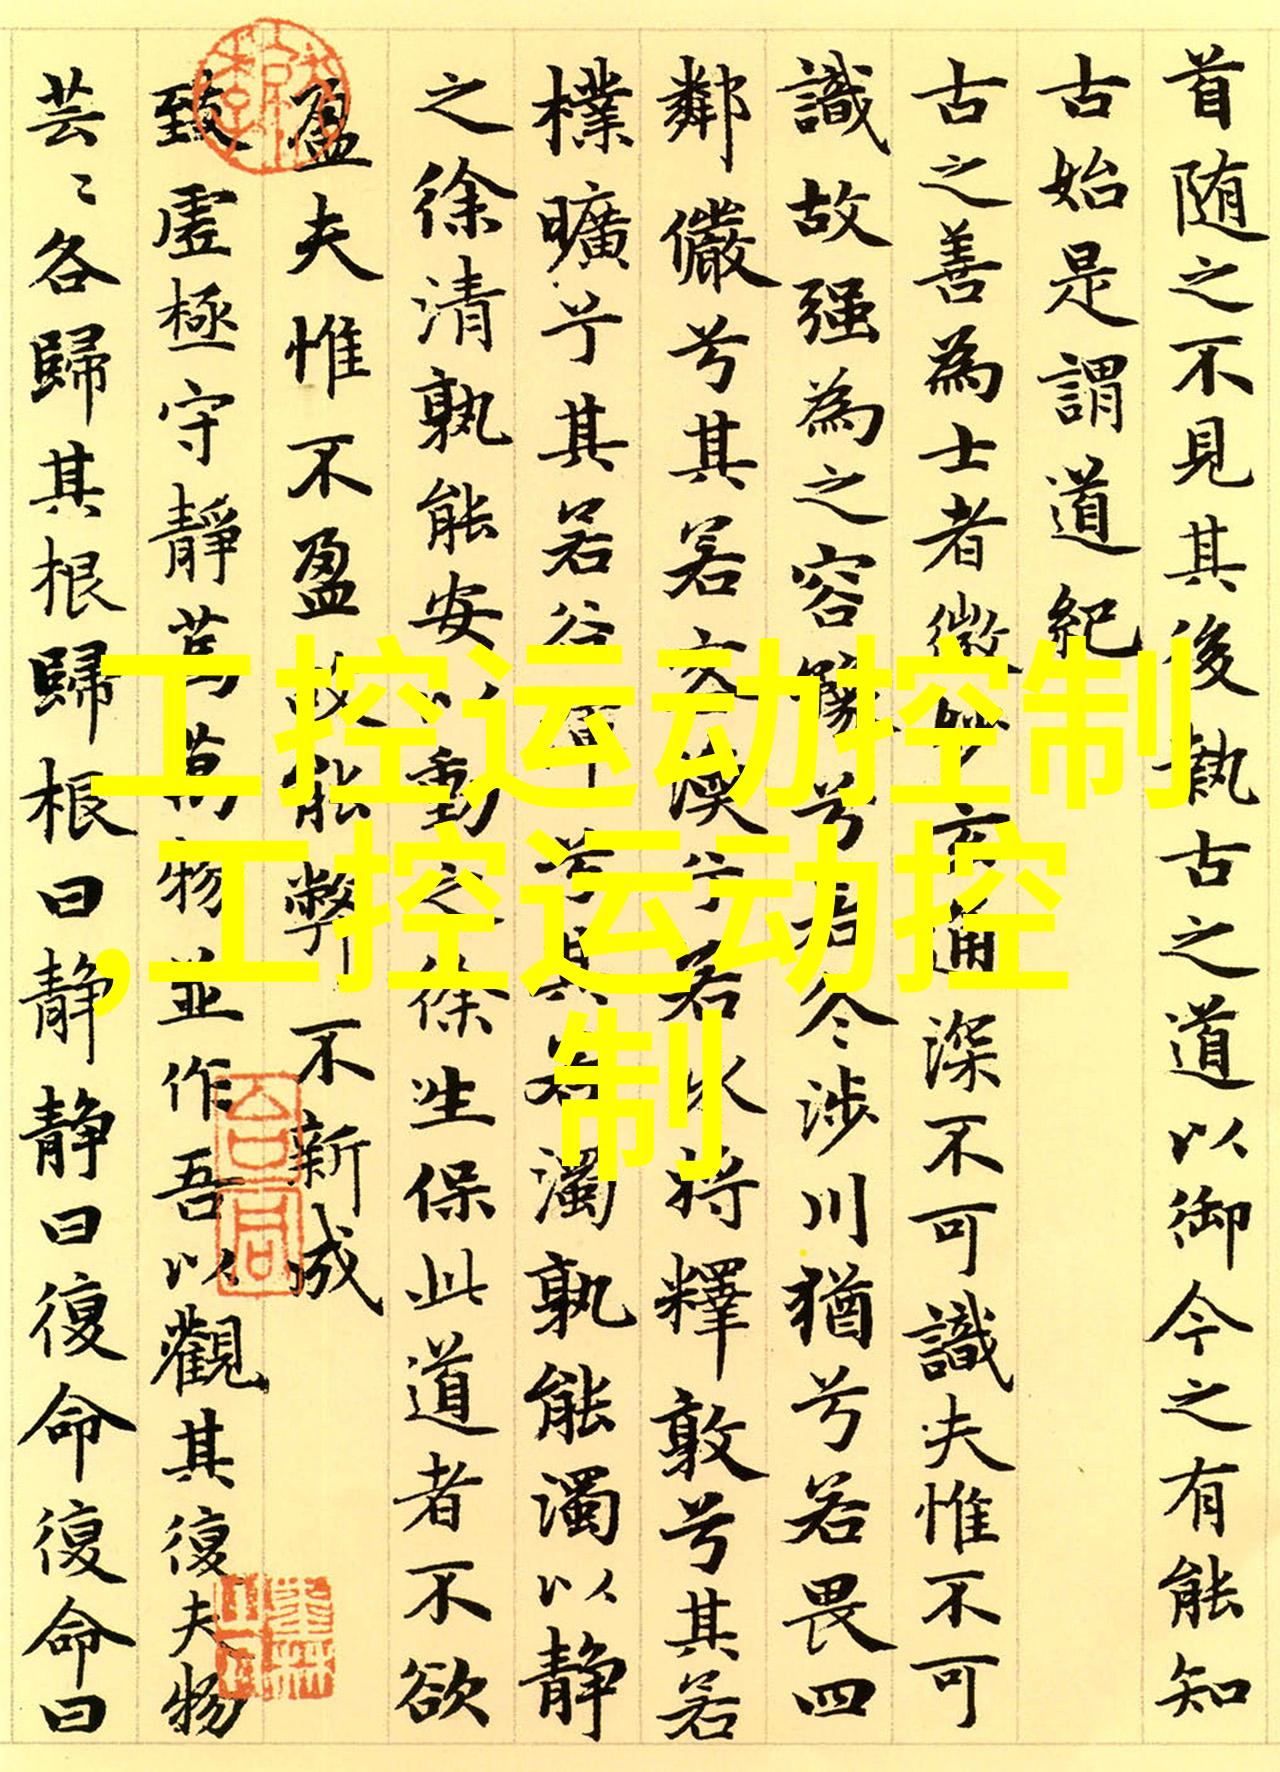 首随之不見其後執古之道以御今之有能知
古始是謂道紀
古之善為士者微妙玄通深不可識夫惟不可
識故强為之容豫兮若冬涉川猶兮若畏四
鄰儼兮其若客渙兮若冰将釋敦兮其若
樸曠兮其若谷渾兮其若濁孰能濁以静
之徐清孰能安以動之徐生保此道者不欲
盈夫惟不盈故能弊不新成
致虛極守靜篤萬物並作吾以觀其復夫物
芸〻各歸其根歸根曰静静曰復命復命曰
工控运动控制
,工控运动控
制